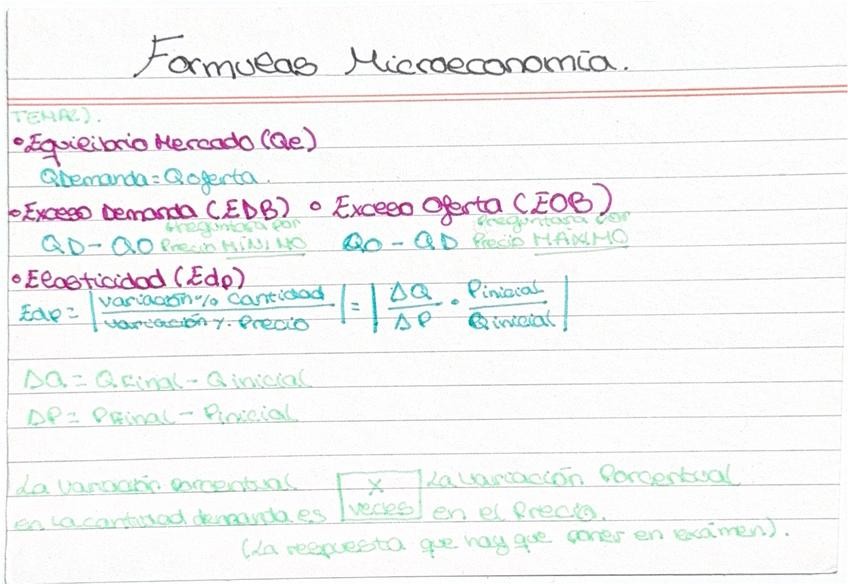 Formulas Microeconomía.
TEMA 2).
• Equilibrio Mercado (Qe)
QDemanda = Qoferta.
• Exceso Demanda (EDB) • Exceso Oferta (EOB)
preguntara por preguntara por
QD - QO Precio MÍNIMO QO - QD Precio MÁXIMO
• Elasticidad (Edp)
Edp = | variación % cantidad / variación %. Precio | = | ΔQ / ΔP • Pinicial / Qinicial |
ΔQ = QFinal - Qinicial
ΔP = PFinal - Pinicial
La variación porcentual X La variación Porcentual
en la cantidad demanda es veces en el Precio.
(La respuesta que hay que poner en exámen).